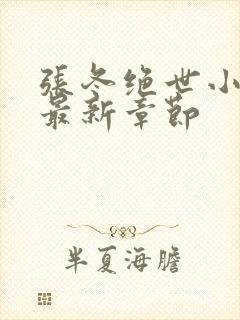 張冬绝世小
最新章節
半夏海膽